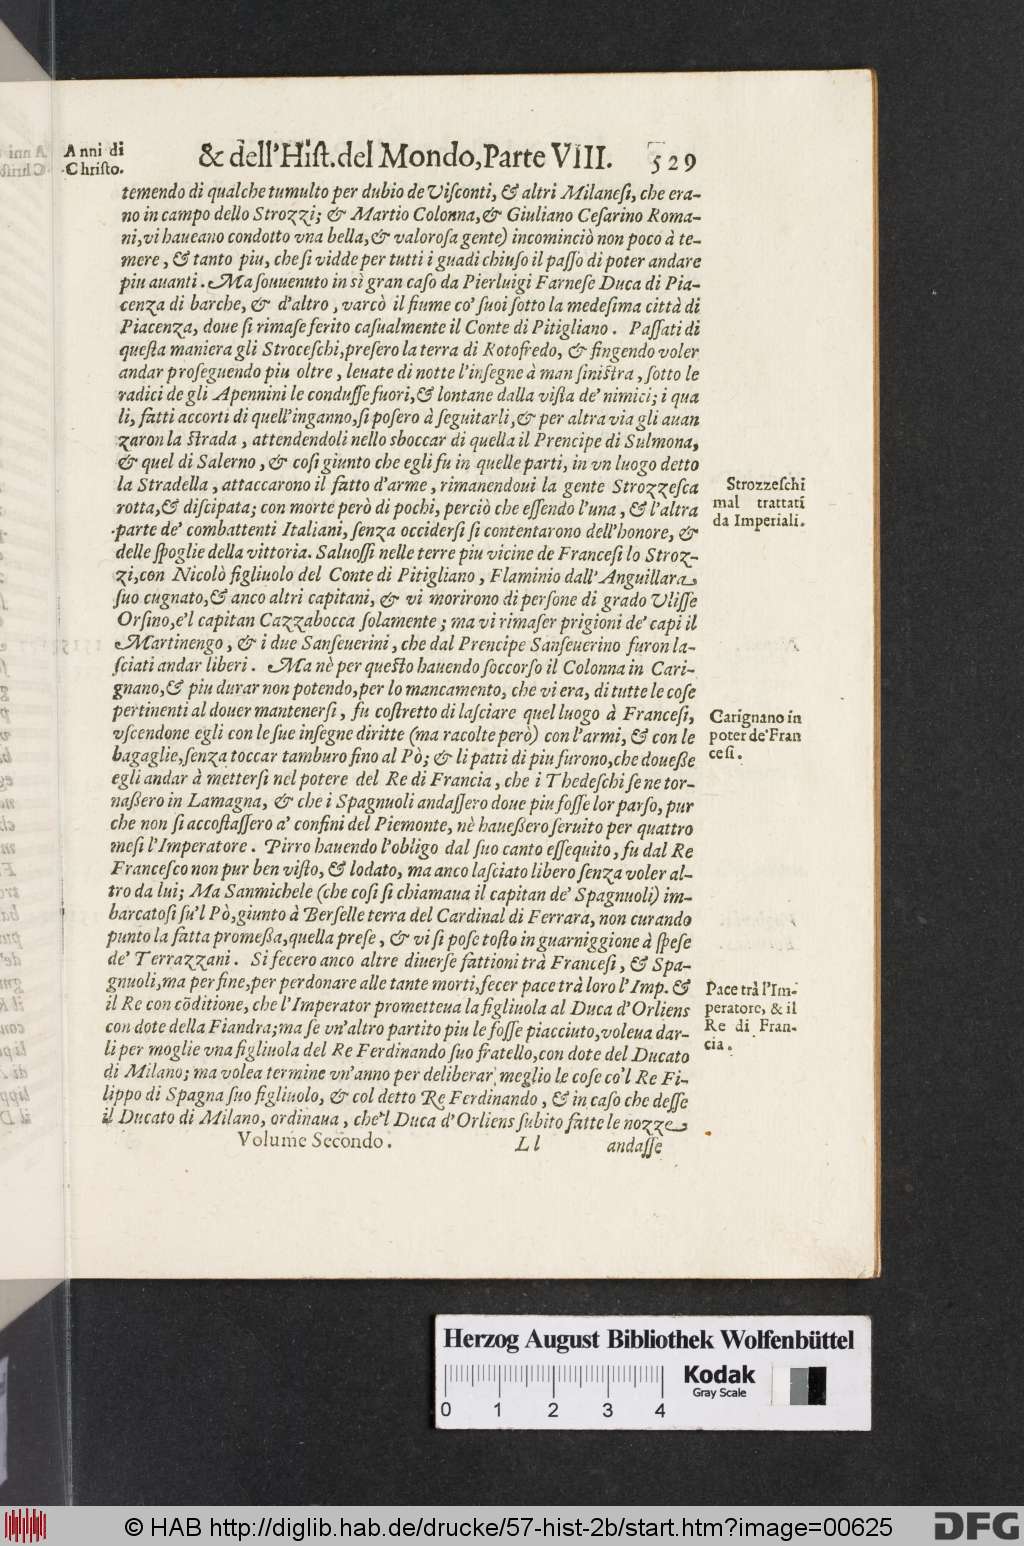 Anni di
Christo.
& dell'Hiſt. del Mondo, Parte VIII. 529
temendo di qualche tumulto per dubio de Viſconti, & altri Milaneſi, che era-
no in campo dello Strozzi; & Martio Colonna, & Giuliano Ceſarino Roma-
ni, vi haueano condotto vna bella, & valoroſa gente) incominciò non poco à te-
mere, & tanto piu, che ſi vidde per tutti i guadi chiuſo il paſſo di poter andare
piu auanti. Ma ſouuenuto in sì gran caſo da Pierluigi Farneſe Duca di Pia-
cenza di barche, & d'altro, varcò il fiume co' ſuoi ſotto la medeſima città di
Piacenza, doue ſi rimaſe ferito caſualmente il Conte di Pitigliano. Paſſati di
queſta maniera gli Stroceſchi, preſero la terra di Rotofredo, & fingendo voler
andar proſeguendo piu oltre, leuate di notte l'inſegne à man ſiniſtra, ſotto le
radici de gli Apennini le conduſſe fuori, & lontane dalla viſta de' nimici; i qua
li, fatti accorti di quell'inganno, ſi poſero à ſeguitarli, & per altra via gli auan
zaron la ſtrada, attendendoli nello sboccar di quella il Prencipe di Sulmona,
& quel di Salerno, & coſi giunto che egli fu in quelle parti, in vn luogo detto
la Stradella, attaccarono il fatto d'arme, rimanendoui la gente Strozzeſca
rotta, & diſcipata; con morte però di pochi, perciò che eſſendo l'una, & l'altra
parte de' combattenti Italiani, ſenza occiderſi ſi contentarono dell'honore, &
delle ſpoglie della vittoria. Saluoſſi nelle terre piu vicine de Franceſi lo Stroz-
zi, con Nicolò figliuolo del Conte di Pitigliano, Flaminio dall'Anguillara
ſuo cugnato, & anco altri capitani, & vi morirono di perſone di grado Vliſſe
Orſino, e'l capitan Cazzabocca ſolamente; ma vi rimaſer prigioni de' capi il
Martinengo, & i due Sanſeuerini, che dal Prencipe Sanſeuerino furon la-
ſciati andar liberi. Ma nè per queſto hauendo ſoccorſo il Colonna in Cari-
gnano, & piu durar non potendo, per lo mancamento, che vi era, di tutte le coſe
pertinenti al douer mantenerſi, fu coſtretto di laſciare quel luogo à Franceſi,
vſcendone egli con le ſue inſegne diritte (ma racolte però) con l'armi, & con le
bagaglie, ſenza toccar tamburo fino al Pò; & li patti di piu furono, che doueſſe
egli andar à metterſi nel potere del Re di Francia, che i Thedeſchi ſe ne tor-
naſſero in Lamagna, & che i Spagnuoli andaſſero doue piu foſſe lor parſo, pur
che non ſi accoſtaſſero a' confini del Piemonte, nè haueſſero ſeruito per quattro
meſi l'Imperatore. Pirro hauendo l'obligo dal ſuo canto eſſequito, fu dal Re
Franceſco non pur ben viſto, & lodato, ma anco laſciato libero ſenza voler al-
tro da lui; Ma Sanmichele (che coſi ſi chiamaua il capitan de' Spagnuoli) im-
barcatoſi ſu'l Pò, giunto à Berſelle terra del Cardinal di Ferrara, non curando
punto la fatta promeſſa, quella preſe, & vi ſi poſe toſto in guarniggione à ſpeſe
de' Terrazzani. Si fecero anco altre diuerſe fattioni trà Franceſi, & Spa-
gnuoli, ma per fine, per perdonare alle tante morti, fecer pace trà loro l'Imp. &
il Re con cõditione, che l'Imperator prometteua la figliuola al Duca d'Orliens
con dote della Fiandra; ma ſe vn'altro partito piu le foſſe piacciuto, voleua dar-
li per moglie vna figliuola del Re Ferdinando ſuo fratello, con dote del Ducato
di Milano; ma volea termine vn'anno per deliberar meglio le coſe co'l Re Fi-
lippo di Spagna ſuo figliuolo, & col detto Re Ferdinando, & in caſo che deſſe
il Ducato di Milano, ordinaua, che'l Duca d'Orliens ſubito fatte le nozze
Volume Secondo. Ll andaſſe
Strozzeſchi
mal trattati
da Imperiali.
Carignano in
poter de'Fran
ceſi.
Pace trà l'Im-
peratore, & il
Re di Fran-
cia.
Herzog August Bibliothek Wolfenbüttel
Kodak
Gray Scale
0 1 2 3 4
© HAB http://diglib.hab.de/drucke/57-hist-2b/start.htm?image=00625
DFG